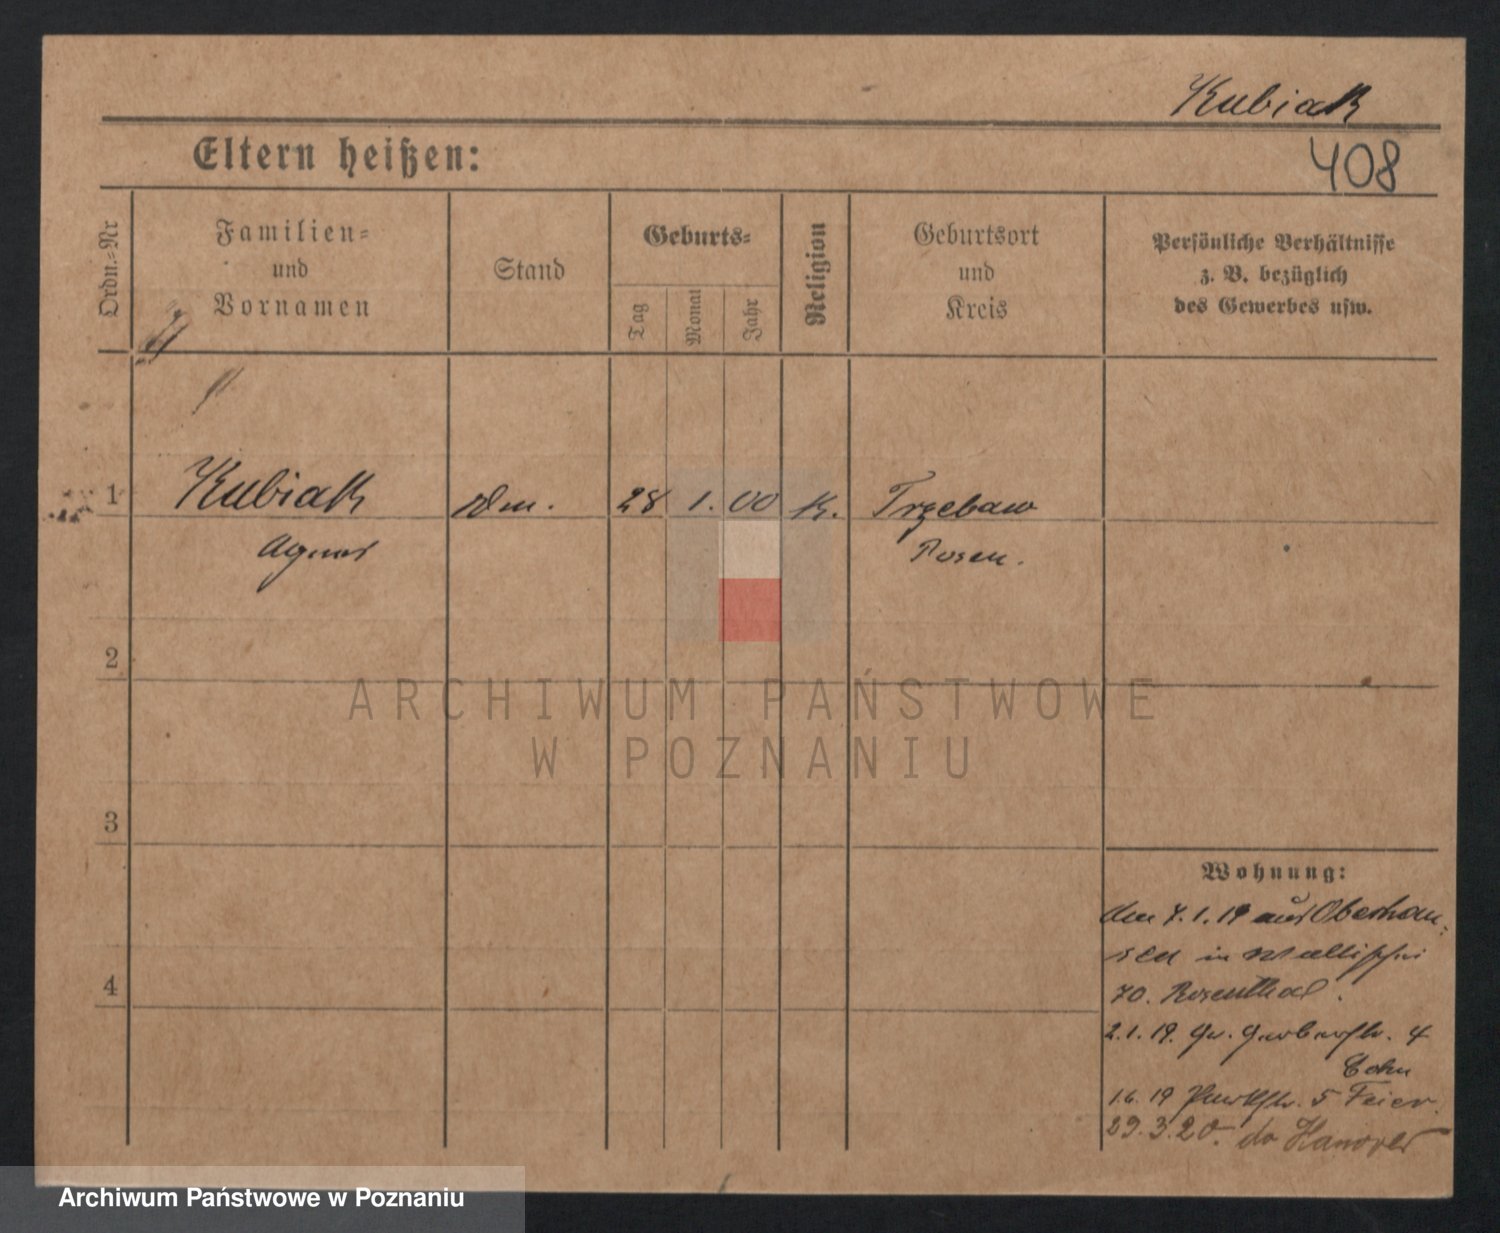 Kubiak
Eltern heißen:
408
Ordn.-Nr
Familien-
und
Vornamen
Stand
Geburts-
Tag
Monat
Jahr
Religion
Geburtsort
und
Kreis
Persönliche Verhältnisse
z. B. bezüglich
des Gewerbes usw.
1
Kubiak
28 1. 00 K.
Trzebaw
Agnes
Posen.
2
ARCHIWUM PAŃSTWOWE
W POZNANIU
3
Wohnung:
den 7.1.19 aus Oberhau-
sen in Wallischei
70. Rosenthal.
4
2.1.19. Gr. Gerberstr. 4
Cohn
1.6.19 Parkstr. 5 Feier.
29.3.20. do Hanover
Archiwum Państwowe w Poznaniu